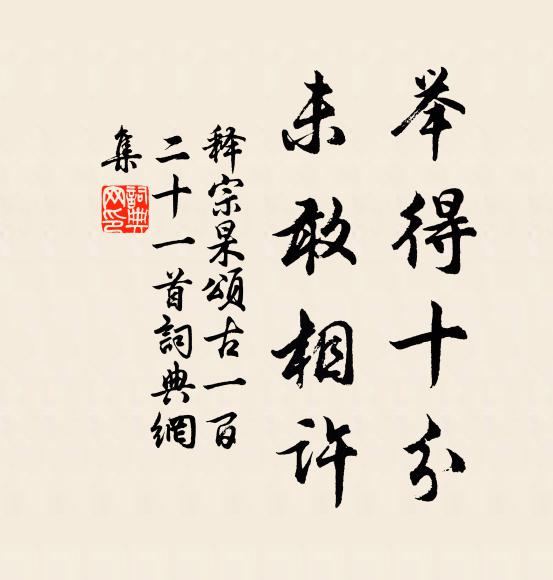 举得十分
未敢相许
释宗杲頌古一百
二十一首詞典網
集
詞典
网印